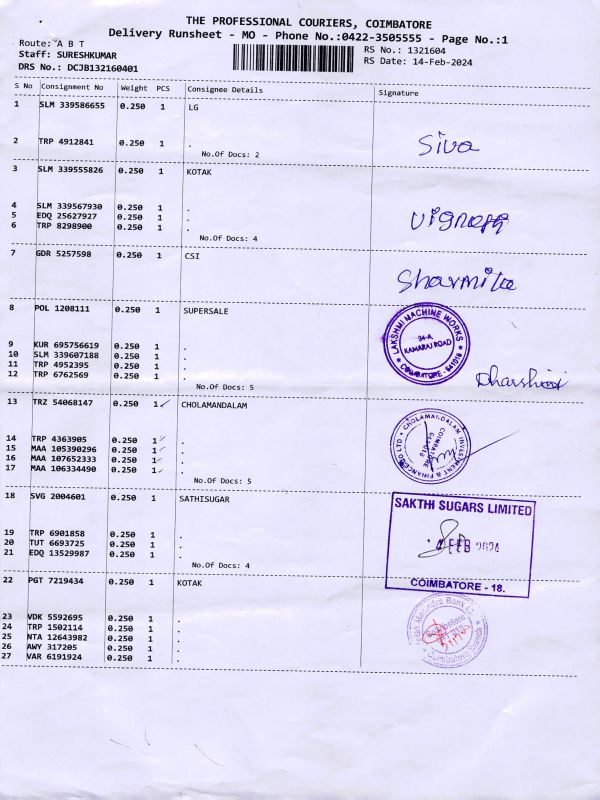 THE PROFESSIONAL COURIERS, COIMBATORE
Delivery Runsheet - MO - Phone No.:0422-3505555 - Page No.:1
Route: A B T
RS No.: 1321604
Staff: SURESHKUMAR
RS Date: 14-Feb-2024
DRS No.: DCJB132160401
S No Consignment No Weight PCS Consignee Details Signature
1 SLM 339586655 0.250 1 LG
2 TRP 4912841 0.250 1 .
No.Of Docs: 2
Siva
3 SLM 339555826 0.250 1 KOTAK
4 SLM 339567930 0.250 1 .
5 EDQ 25627927 0.250 1 .
6 TRP 8298900 0.250 1 .
No.Of Docs: 4
7 GDR 5257598 0.250 1 CSI
Sharmila
8 POL 1208111 0.250 1 SUPERSALE
LAKSHMI MACHINE WORKS
34-A
KAMARAJ ROAD
COIMBATORE - 641018
9 KUR 695756619 0.250 1 .
10 SLM 339607188 0.250 1 .
11 TRP 4952395 0.250 1 .
12 TRP 6762569 0.250 1 .
No.Of Docs: 5
Dharshini
13 TRZ 54068147 0.250 1 CHOLAMANDALAM
CHOLAMANDALAM INVESTMENT & FINANCE CO LTD
COIMBATORE
14 TRP 4363905 0.250 1 .
15 MAA 105390296 0.250 1 .
16 MAA 107652333 0.250 1 .
17 MAA 106334490 0.250 1 .
No.Of Docs: 5
18 SVG 2004601 0.250 1 SATHISUGAR
SAKTHI SUGARS LIMITED
FEB 2024
COIMBATORE - 18.
19 TRP 6901858 0.250 1 .
20 TUT 6693725 0.250 1 .
21 EDQ 13529987 0.250 1 .
No.Of Docs: 4
22 PGT 7219434 0.250 1 KOTAK
23 VDK 5592695 0.250 1 .
24 TRP 1502114 0.250 1 .
25 NTA 12643982 0.250 1 .
26 AWY 317205 0.250 1 .
27 VAR 6191924 0.250 1 .
Kotak Mahindra Bank Ltd
Coimbatore
Coimbatore Branch